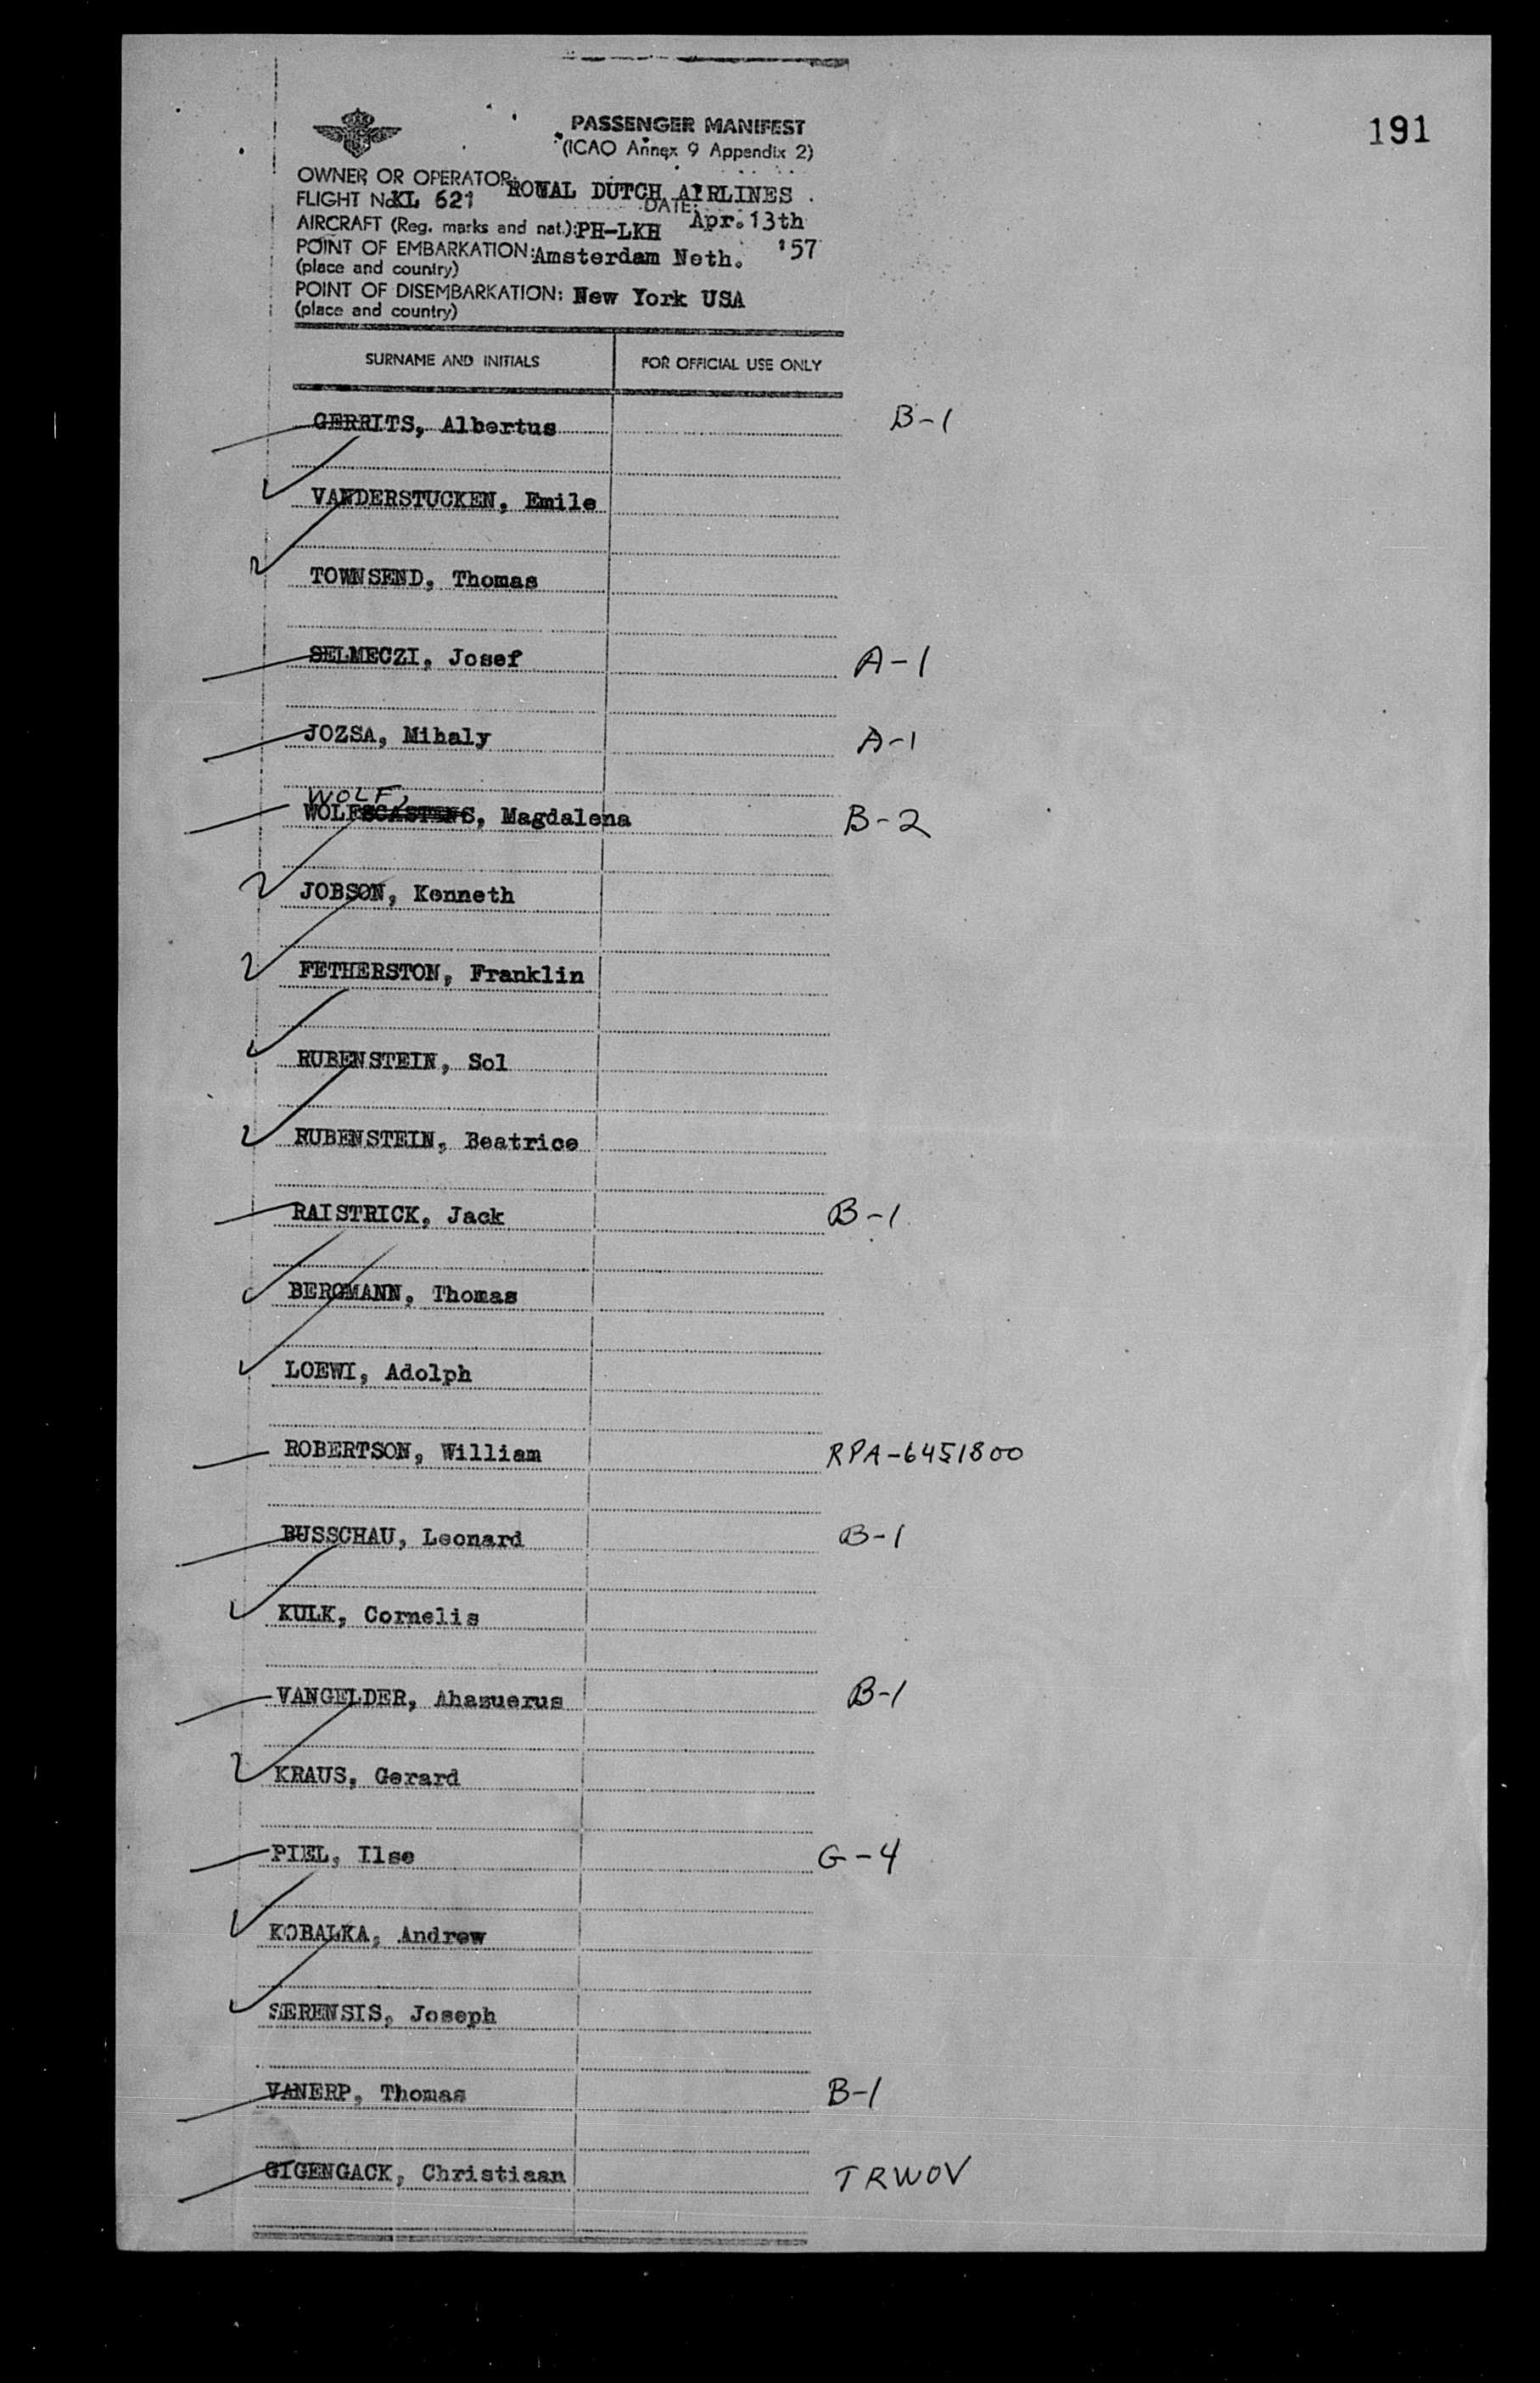 191
PASSENGER MANIFEST
(ICAO Annex 9 Appendix 2)
OWNER OR OPERATOR: ROWAL DUTCH AIRLINES
FLIGHT No KL 621 DATE: Apr. 13th '57
AIRCRAFT (Reg. marks and nat.): PH-LKH
POINT OF EMBARKATION: Amsterdam Neth.
(place and country)
POINT OF DISEMBARKATION: New York USA
(place and country)
SURNAME AND INITIALS FOR OFFICIAL USE ONLY
GERRITS, Albertus B-1
VANDERSTUCKEN, Emile
TOWNSEND, Thomas
SELMECZI, Josef A-1
JOZSA, Mihaly A-1
WOLF,
WOLFSCASTENS, Magdalena B-2
JOBSON, Kenneth
FETHERSTON, Franklin
RUBENSTEIN, Sol
RUBENSTEIN, Beatrice
RAISTRICK, Jack B-1
BERGMANN, Thomas
LOEWI, Adolph
ROBERTSON, William RPA-6451800
BUSSCHAU, Leonard B-1
KULK, Cornelis
VANGELDER, Ahasuerus B-1
KRAUS, Gerard
PIEL, Ilse G-4
KOBALKA, Andrew
SERENSIS, Joseph
VANERP, Thomas B-1
GIGENGACK, Christiaan TRWOV